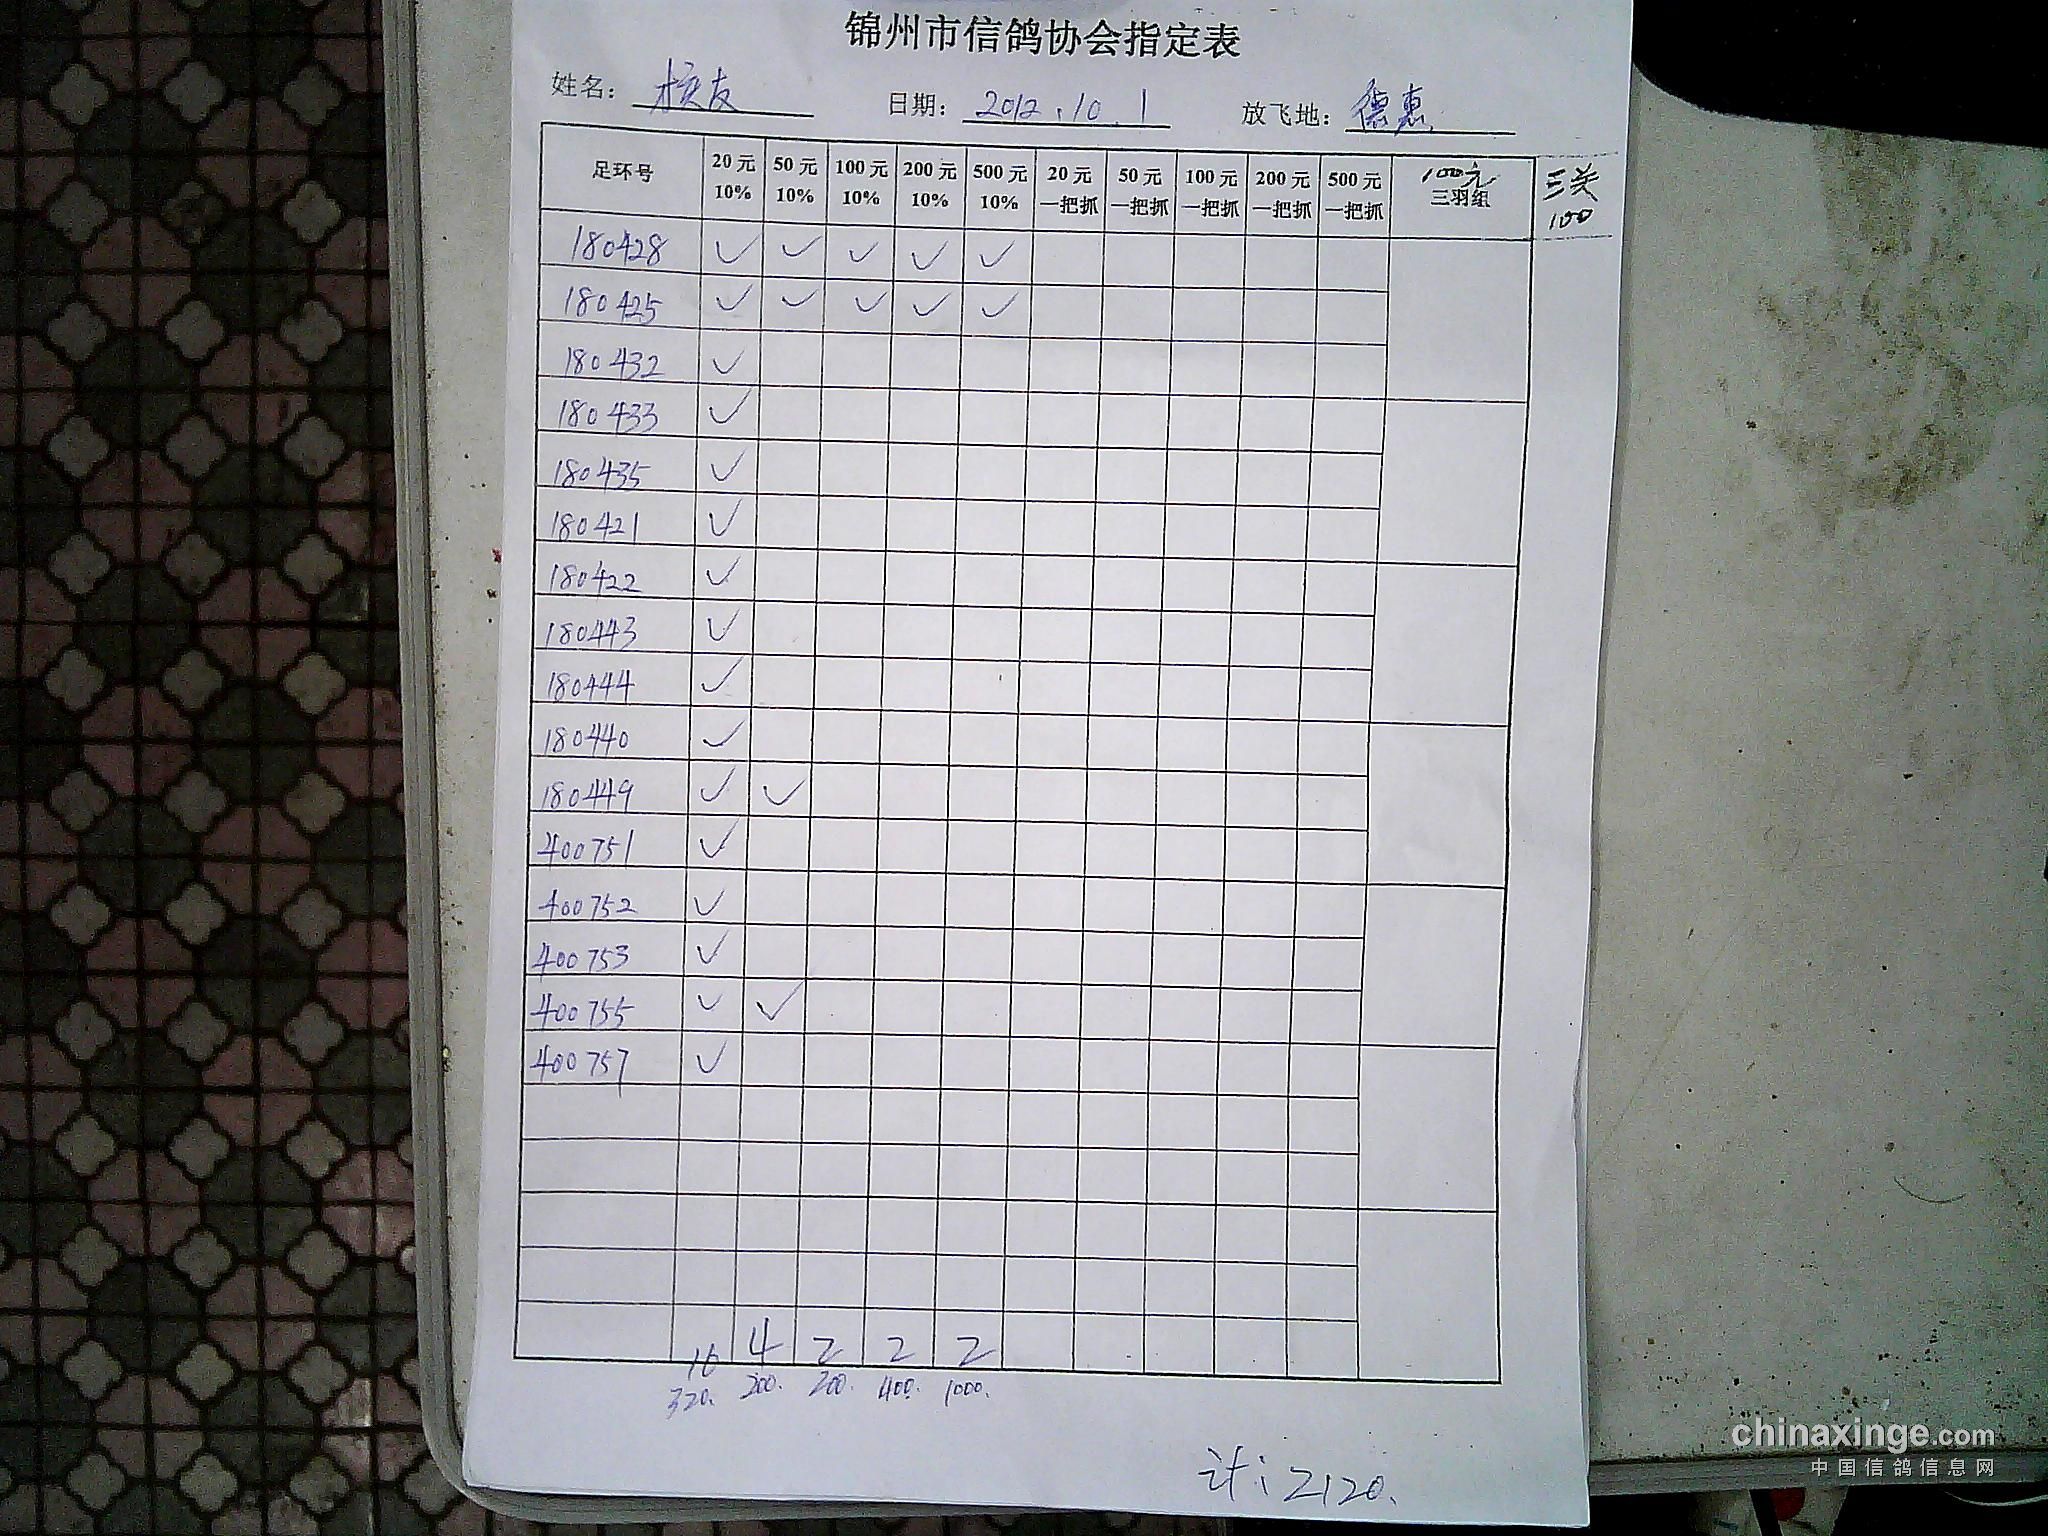 锦州市信鸽协会指定表
姓名： 校友 日期： 2012.10.1 放飞地： 德惠
足环号 20元 10% 50元 10% 100元 10% 200元 10% 500元 10% 20元 一把抓 50元 一把抓 100元 一把抓 200元 一把抓 500元 一把抓 100元 三羽组 三关 100
180428 ✓ ✓ ✓ ✓ ✓
180425 ✓ ✓ ✓ ✓ ✓
180432 ✓
180433 ✓
180435 ✓
180421 ✓
180422 ✓
180443 ✓
180444 ✓
180440 ✓
180449 ✓ ✓
400751 ✓
400752 ✓
400753 ✓
400755 ✓ ✓
400757 ✓
16 4 2 2 2
320. 200. 200. 400. 1000.
计：2120.
chinaxinge.com
中国信鸽信息网